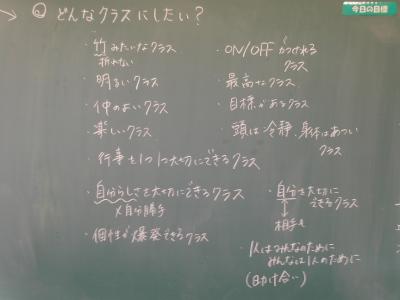 Q どんなクラスにしたい？
今日の目標
・竹みたいなクラス
折れない
・明るいクラス
・仲のよいクラス
・楽しいクラス
・行事を1つ1つ大切にできるクラス
・自分らしさを大切にできるクラス
×自分勝手
・個性が爆発できるクラス
・ON/OFFがつけれる
クラス
・最高なクラス
・目標があるクラス
・頭は冷静、身体はあつい
クラス
・自分を大切に
できるクラス
相手も
・1人はみんなのために
みんなは1人のために
(助け合い)